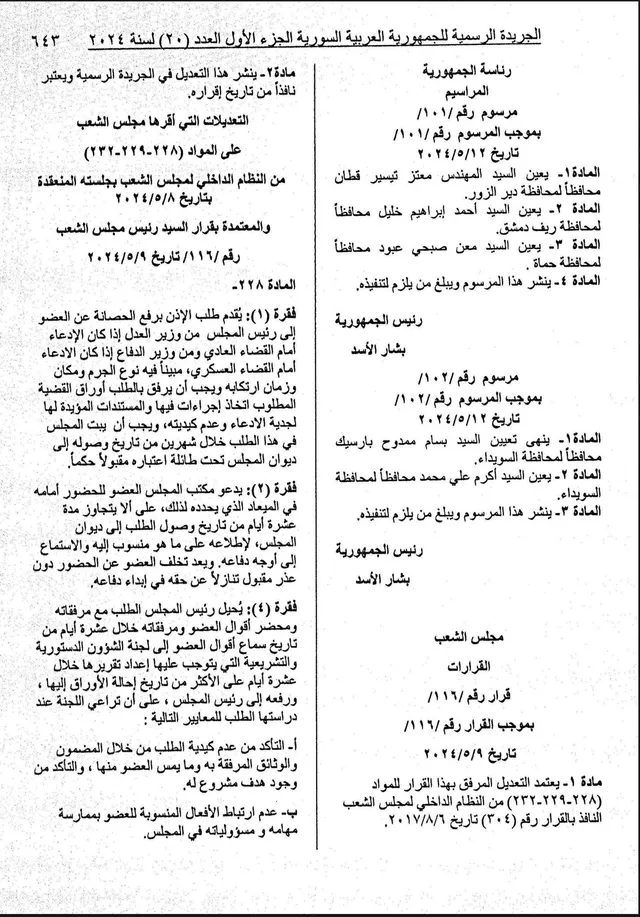 الجريدة الرسمية للجمهورية العربية السورية الجزء الأول العدد (٢٠) لسنة ٢٠٢٤ ٦٤٣
رئاسة الجمهورية
المراسيم
مرسوم رقم /١٠١/
بموجب المرسوم رقم /١٠١/
تاريخ ٢٠٢٤/٥/١٢
المادة١- يعين السيد المهندس معتز تيسير قطان
محافظاً لمحافظة دير الزور.
المادة ٢- يعين السيد أحمد إبراهيم خليل محافظاً
لمحافظة ريف دمشق.
المادة ٣- يعين السيد معن صبحي عبود محافظاً
لمحافظة حماة .
المادة ٤- ينشر هذا المرسوم ويبلغ من يلزم لتنفيذه.
رئيس الجمهورية
بشار الأسد
مرسوم رقم /١٠٢/
بموجب المرسوم رقم /١٠٢/
تاريخ ٢٠٢٤/٥/١٢
المادة١- ينهى تعيين السيد بسام ممدوح بارسيك
محافظاً لمحافظة السويداء.
المادة ٢- يعين السيد أكرم علي محمد محافظاً لمحافظة
السويداء.
المادة ٣- ينشر هذا المرسوم ويبلغ من يلزم لتنفيذه.
رئيس الجمهورية
بشار الأسد
مجلس الشعب
القرارات
قرار رقم /١١٦/
بموجب القرار رقم /١١٦/
تاريخ ٢٠٢٤/٥/٩
مادة ١- يعتمد التعديل المرفق بهذا القرار للمواد
(٢٢٨-٢٢٩-٢٣٢) من النظام الداخلي لمجلس الشعب
النافذ بالقرار رقم (٣٠٤) تاريخ ٢٠١٧/٨/٦.
مادة٢- ينشر هذا التعديل في الجريدة الرسمية ويعتبر
نافذاً من تاريخ إقراره.
التعديلات التي أقرها مجلس الشعب
على المواد (٢٢٨-٢٢٩-٢٣٢)
من النظام الداخلي لمجلس الشعب بجلسته المنعقدة
بتاريخ ٢٠٢٤/٥/٨
والمعتمدة بقرار السيد رئيس مجلس الشعب
رقم /١١٦/ تاريخ ٢٠٢٤/٥/٩
المادة ٢٢٨-
فقرة (١): يُقدم طلب الإذن برفع الحصانة عن العضو
إلى رئيس المجلس من وزير العدل إذا كان الإدعاء
أمام القضاء العادي ومن وزير الدفاع إذا كان الادعاء
أمام القضاء العسكري، مبيناً فيه نوع الجرم ومكان
وزمان ارتكابه ويجب أن يرفق بالطلب أوراق القضية
المطلوب اتخاذ إجراءات فيها والمستندات المؤيدة لها
لجدية الادعاء وعدم كيديته، ويجب أن يبت المجلس
في هذا الطلب خلال شهرين من تاريخ وصوله إلى
ديوان المجلس تحت طائلة اعتباره مقبولاً حكماً.
فقرة (٢): يدعو مكتب المجلس العضو للحضور أمامه
في الميعاد الذي يحدده لذلك، على ألا يتجاوز مدة
عشرة أيام من تاريخ وصول الطلب إلى ديوان
المجلس، لإطلاعه على ما هو منسوب إليه والاستماع
إلى أوجه دفاعه. ويعد تخلف العضو عن الحضور دون
عذر مقبول تنازلاً عن حقه في إبداء دفاعه.
فقرة (٤): يُحيل رئيس المجلس الطلب مع مرفقاته
ومحضر أقوال العضو ومرفقاته خلال عشرة أيام من
تاريخ سماع أقوال العضو إلى لجنة الشؤون الدستورية
والتشريعية التي يتوجب عليها إعداد تقريرها خلال
عشرة أيام على الأكثر من تاريخ إحالة الأوراق إليها ،
ورفعه إلى رئيس المجلس ، على أن تراعي اللجنة عند
دراستها الطلب للمعايير التالية :
أ- التأكد من عدم كيدية الطلب من خلال المضمون
والوثائق المرفقة به وما يمس العضو منها ، والتأكد من
وجود هدف مشروع له.
ب- عدم ارتباط الأفعال المنسوبة للعضو بممارسة
مهامه و مسؤولياته في المجلس.